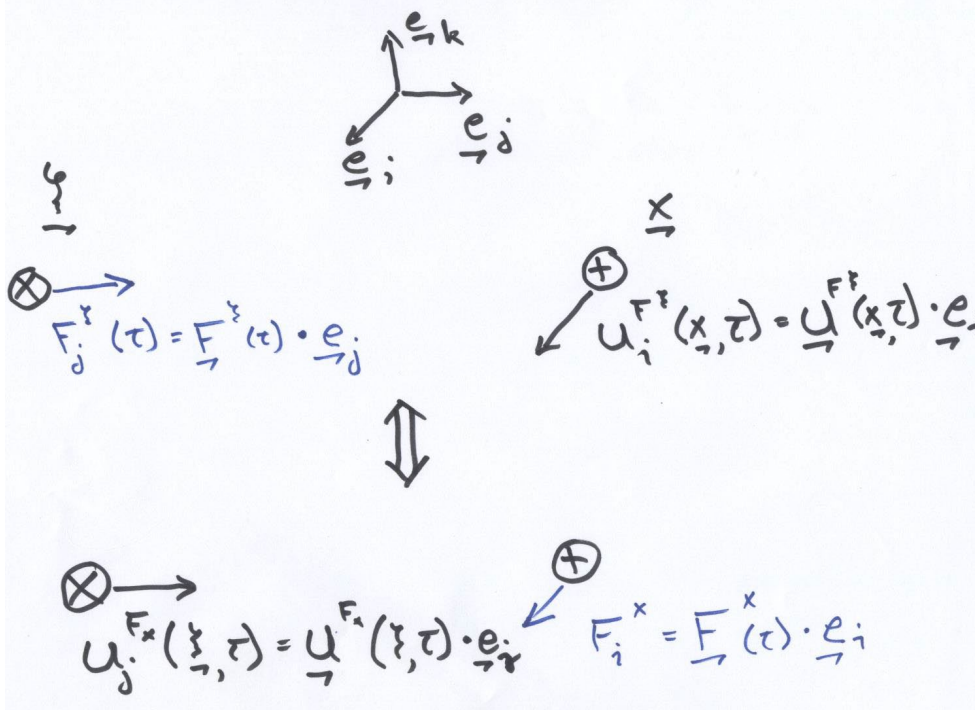 e k
e i e j
ξ
x
F_j^ξ (τ) = F^ξ (τ) · e_j
u_i^{F^ξ} (x, τ) = u^{F^ξ} (x, τ) · e
u_j^{F_x} (ξ, τ) = u^{F_x} (ξ, τ) · e_j
F_i^x = F^x (τ) · e_i